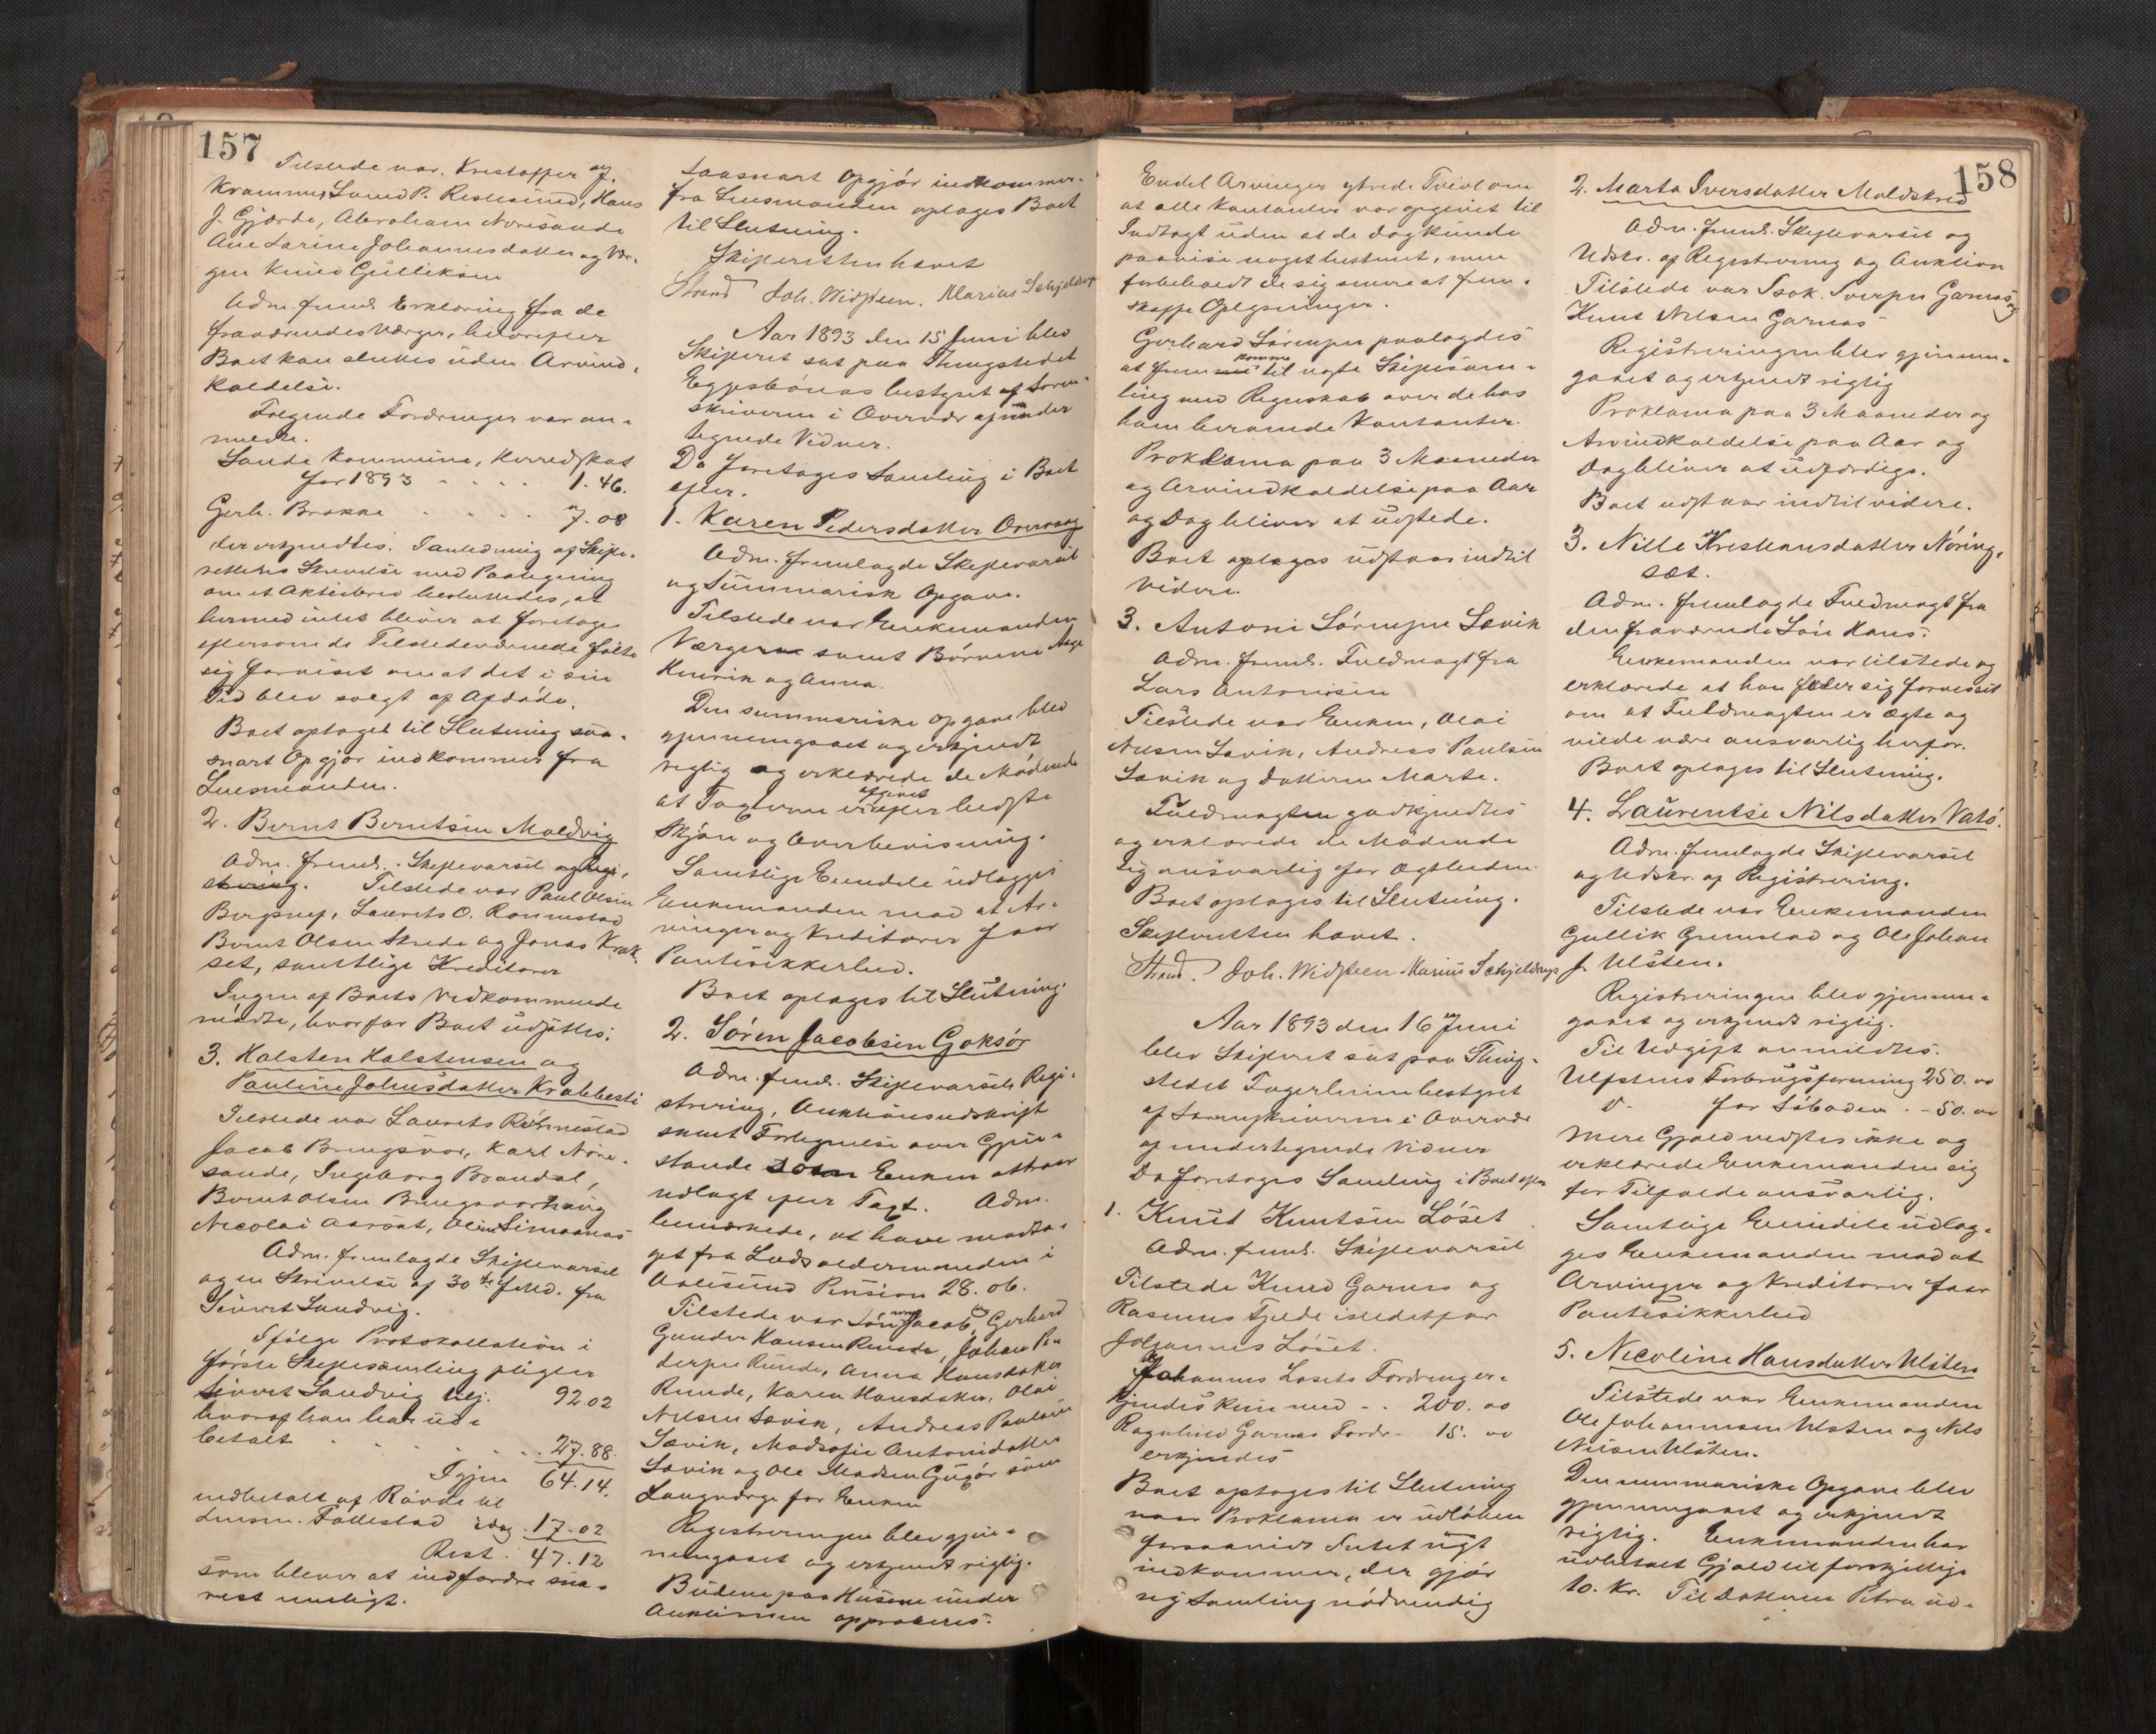 157
Tilstede var. Kristoffer J.
Krammer, Svend P. Ristesund, Hans
J. Gjærde, Abraham Noresande
Ane Larine Johannesdatter og Vær-
gen Knud Gulliksen
Adm. freml. Erklæring fra de
fraværendes Værger, hvorefter
Boet kan sluttes uden Arvind-
kaldelse.
Følgende Fordringer var an-
meldte.
Sande Kommune, Herredskat
for 1893 . . . . 1.46.
Gerh. Brakke . . . . 7.08
der erkjendtes. I anledning af Skifte-
rettens Skrivelse med Paategning
om et Aktiebrev besluttedes, at
hermed intet bliver at foretage
eftersom de Tilstedeværende følte
sig forvisset om at det i sin
Tid blev solgt af Afdøde.
Boet optages til Slutning saa-
snart Opgjør indkommer fra
Lensmanden.
2. Bernt Berntsen Moldvig
Adm. freml. Skiftevarsel og Regi-
strering. Tilstede var Paul Olsen
Bergsnes, Laurits O. Rønnestad
Bernt Olsen Skrede og Jonas Krak-
set, samtlige Kreditorer
Ingen af Boets Vedkommende
mødte, hvorfor Boet udsattes.
3. Halsten Halstensen og
Pauline Johnsdatter Krabbesti
Tilstede var Laurits Rønnestad
Jacob Bringsvor, Karl Nore-
sande, Ingeborg Brandal,
Bernt Olsen Bringsvorhaug
Nicolai Aarsæt, Oline Limaanes
Adm. fremlagde Skiftevarsel
og en Skrivelse af 30te f. Md. fra
Sivert Sandvig.
Ifølge Protokollation i
første Skiftesamling pligter
Sivert Sandvig Vej. 92.02
hvoraf han har ud-
betalt . . . . . . 27.88.
Igjen 64.14.
indbetalt af Røvde til
Lensm. Follestad idag . 17.02
Rest. 47.12
som bliver at indfordre sna-
rest muligt.
saasnart Opgjør indkommer
fra Lensmanden optages Boet
til Slutning.
Skifteretten hævet
Strand Joh. Widsteen. Marius Schjeldrup
Aar 1893 den 15 Juni blev
Skifteret sat paa Thingstedet
Eggesbønes bestyret af Soren-
skriveren i Overvær af under
tegnede Vidner.
Da foretages Samling i Boet
efter.
1. Karen Pedersdatter Overvaag
Adm. fremlagde Skiftevarsel
og Summarisk Opgave.
Tilstede var Enkemanden
Værgerne samt Børnene Aage
Henrik og Anna.
Den summariske Opgave blev
gjennemgaaet og erkjendt
rigtig og erklærede de Mødende
at Taxterne er afgivet efter bedste
Skjøn og Overbevisning.
Samtlige Eiendele udlægges
Enkemanden mod at Ar-
vinger og Kreditorer faar
Pantesikkerhed.
Boet optages til Slutning.
2. Søren Jacobsen Goksør
Adm. freml. Skiftevarsel, Regi-
strering, Auktionsudskrift
samt Fortegnelse over Gjen-
stande som Enken attraar
udlagt efter Taxt. Adm.
bemærkede, at have modta-
get fra Lodsoldermanden i
Aalesund Pension 28.06.
Tilstede var Sønnerne Jacob og Gerhard
Gunder Hansen Runde, Johan Pe-
dersen Runde, Anna Hansdatter
Runde, Karen Hansdatter, Olai
Nilsen Sævik, Andreas Paulsen
Sævik, Madsofie Antonidatter
Sævik og Ole Madsen Gugør som
Laugværge for Enken
Registreringen blev gjen-
nemgaaet og erkjendt rigtig.
Budene paa Husene under
Auktionen approberes.
158
Endel Arvinger ytrede Tvivl om
at alle Kontanter var opgivet til
Indtægt uden at de dog kunde
paavise noget bestemt, men
forbeholdt de sig senere at frem-
skaffe Oplysninger.
Gerhard Sørensen paalagdes
at fremkomme til næste Skiftesam-
ling med Regnskab over de hos
ham beroende Kontanter.
Proklama paa 3 Maaneder
og Arvindkaldelse paa Aar
og Dag bliver at udstede.
Boet optages udstaar indtil
videre.
3. Antoni Sørensen Sævik
Adm. freml. Fuldmagt fra
Lars Antonisen
Tilstede var Enken, Olai
Nilsen Sævik, Andreas Paulsen
Sævik og Datteren Marte.
Fuldmagten godkjendtes
og erklærede de Mødende
sig ansvarlig for Ægtheden.
Boet optages til Slutning.
Skifteretten hævet.
Strand. Joh. Widsteen Marius Schjeldrup
Aar 1893 den 16 Juni
blev Skifteret sat paa Thing-
stedet Fagerheim bestyret
af Sorenskriveren i Overvær
af undertegnede Vidner
Da foretages Samling i Boet efter
1. Knud Knutsen Løset
Adm. freml. Skiftevarsel
Tilstede Knud Garnes og
Rasmus Tjelde istedetfor
Johannes Løset.
Johannes Løsets Fordring er-
kjendes kun med . . 200.00
Ragnhild Garnæs Fordr. 15.00
erkjendes
Boet optages til Slutning
naar Proklama er udløben
forsaavidt Intet nyt
indkommer, der gjør
ny Samling nødvendig
2. Marta Iversdatter Moldskred
Adm. freml. Skiftevarsel og
Udskr. af Registrering og Auktion
Tilstede var Isak Iversen Garnæs og
Knut Nilsen Garnæs
Registreringen blev gjennem-
gaaet og erkjendt rigtig
Proklama paa 3 Maaneder og
Arvindkaldelse paa Aar og
Dag bliver at udfærdige.
Boet udstaar indtil videre.
3. Nille Kristiansdatter Nøring-
sæt.
Adm. fremlagde Fuldmagt fra
den fraværende Søn Hans.
Enkemanden var tilstede og
erklærede at han føler sig forvisset
om at Fuldmagten er ægte og
vilde være ansvarlig herfor.
Boet optages til Slutning.
4. Laurentse Nilsdatter Vatø.
Adm. fremlagde Skiftevarsel
og Udskr. af Registrering.
Tilstede var Enkemanden
Gullik Grimstad og Ole Johan
J. Ulsten.
Registreringen blev gjennem-
gaaet og erkjendt rigtig.
Til Udgift anmeldtes.
Ulstens Forbrugsforening 250.00
D- for Søboden . - 50.00
Mere Gjæld vidstes ikke og
erklærede Enkemanden sig
for Tilfælde ansvarlig.
Samtlige Eiendele udlæg-
ges Enkemanden mod at
Arvinger og Kreditorer faar
Pantesikkerhed
5. Nicoline Hansdatter Ulsten
Tilstede var Enkemanden
Ole Johannesen Ulsten og Nils
Nilsen Ulsten.
Den summariske Opgave blev
gjennemgaaet og erkjendt
rigtig. Enkemanden har
udbetalt Gjæld til forskjellige
10. Kr. Til Datteren Petra ud-